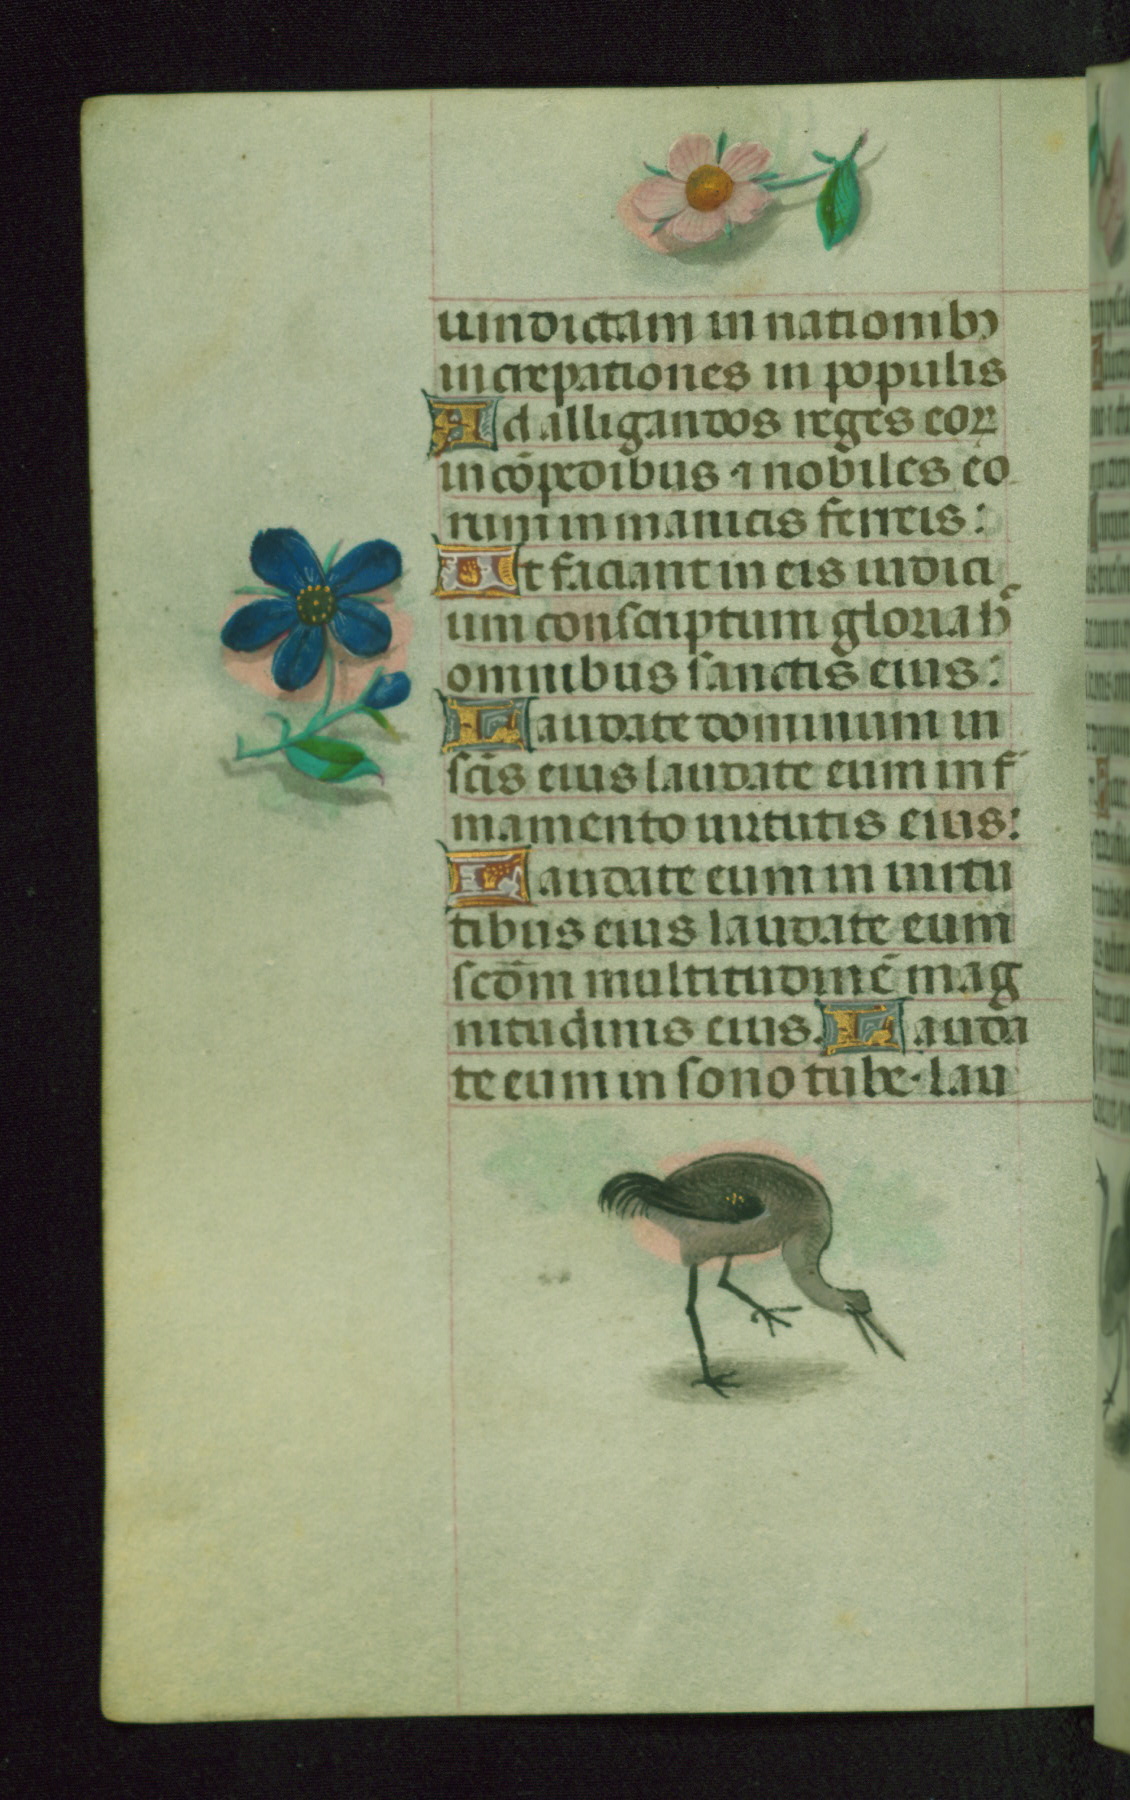 uindictam in nationibꝫ
increpationes in populis
Ad alligandos reges eoꝝ
in cōpedibus ⁊ nobiles eo
rum in manicis ferreis:
Ut faciant in eis iudici
um conscriptum gloria h̄
omnibus sanctis eius:
Laudate dominum in
scīs eius laudate eum in f̄
mamento uirtutis eius:
Laudate eum in uirtu
tibus eius laudate eum
scdm̄ multitudinē mag
nitudinis eius. Lauda
te eum in sono tube· lau